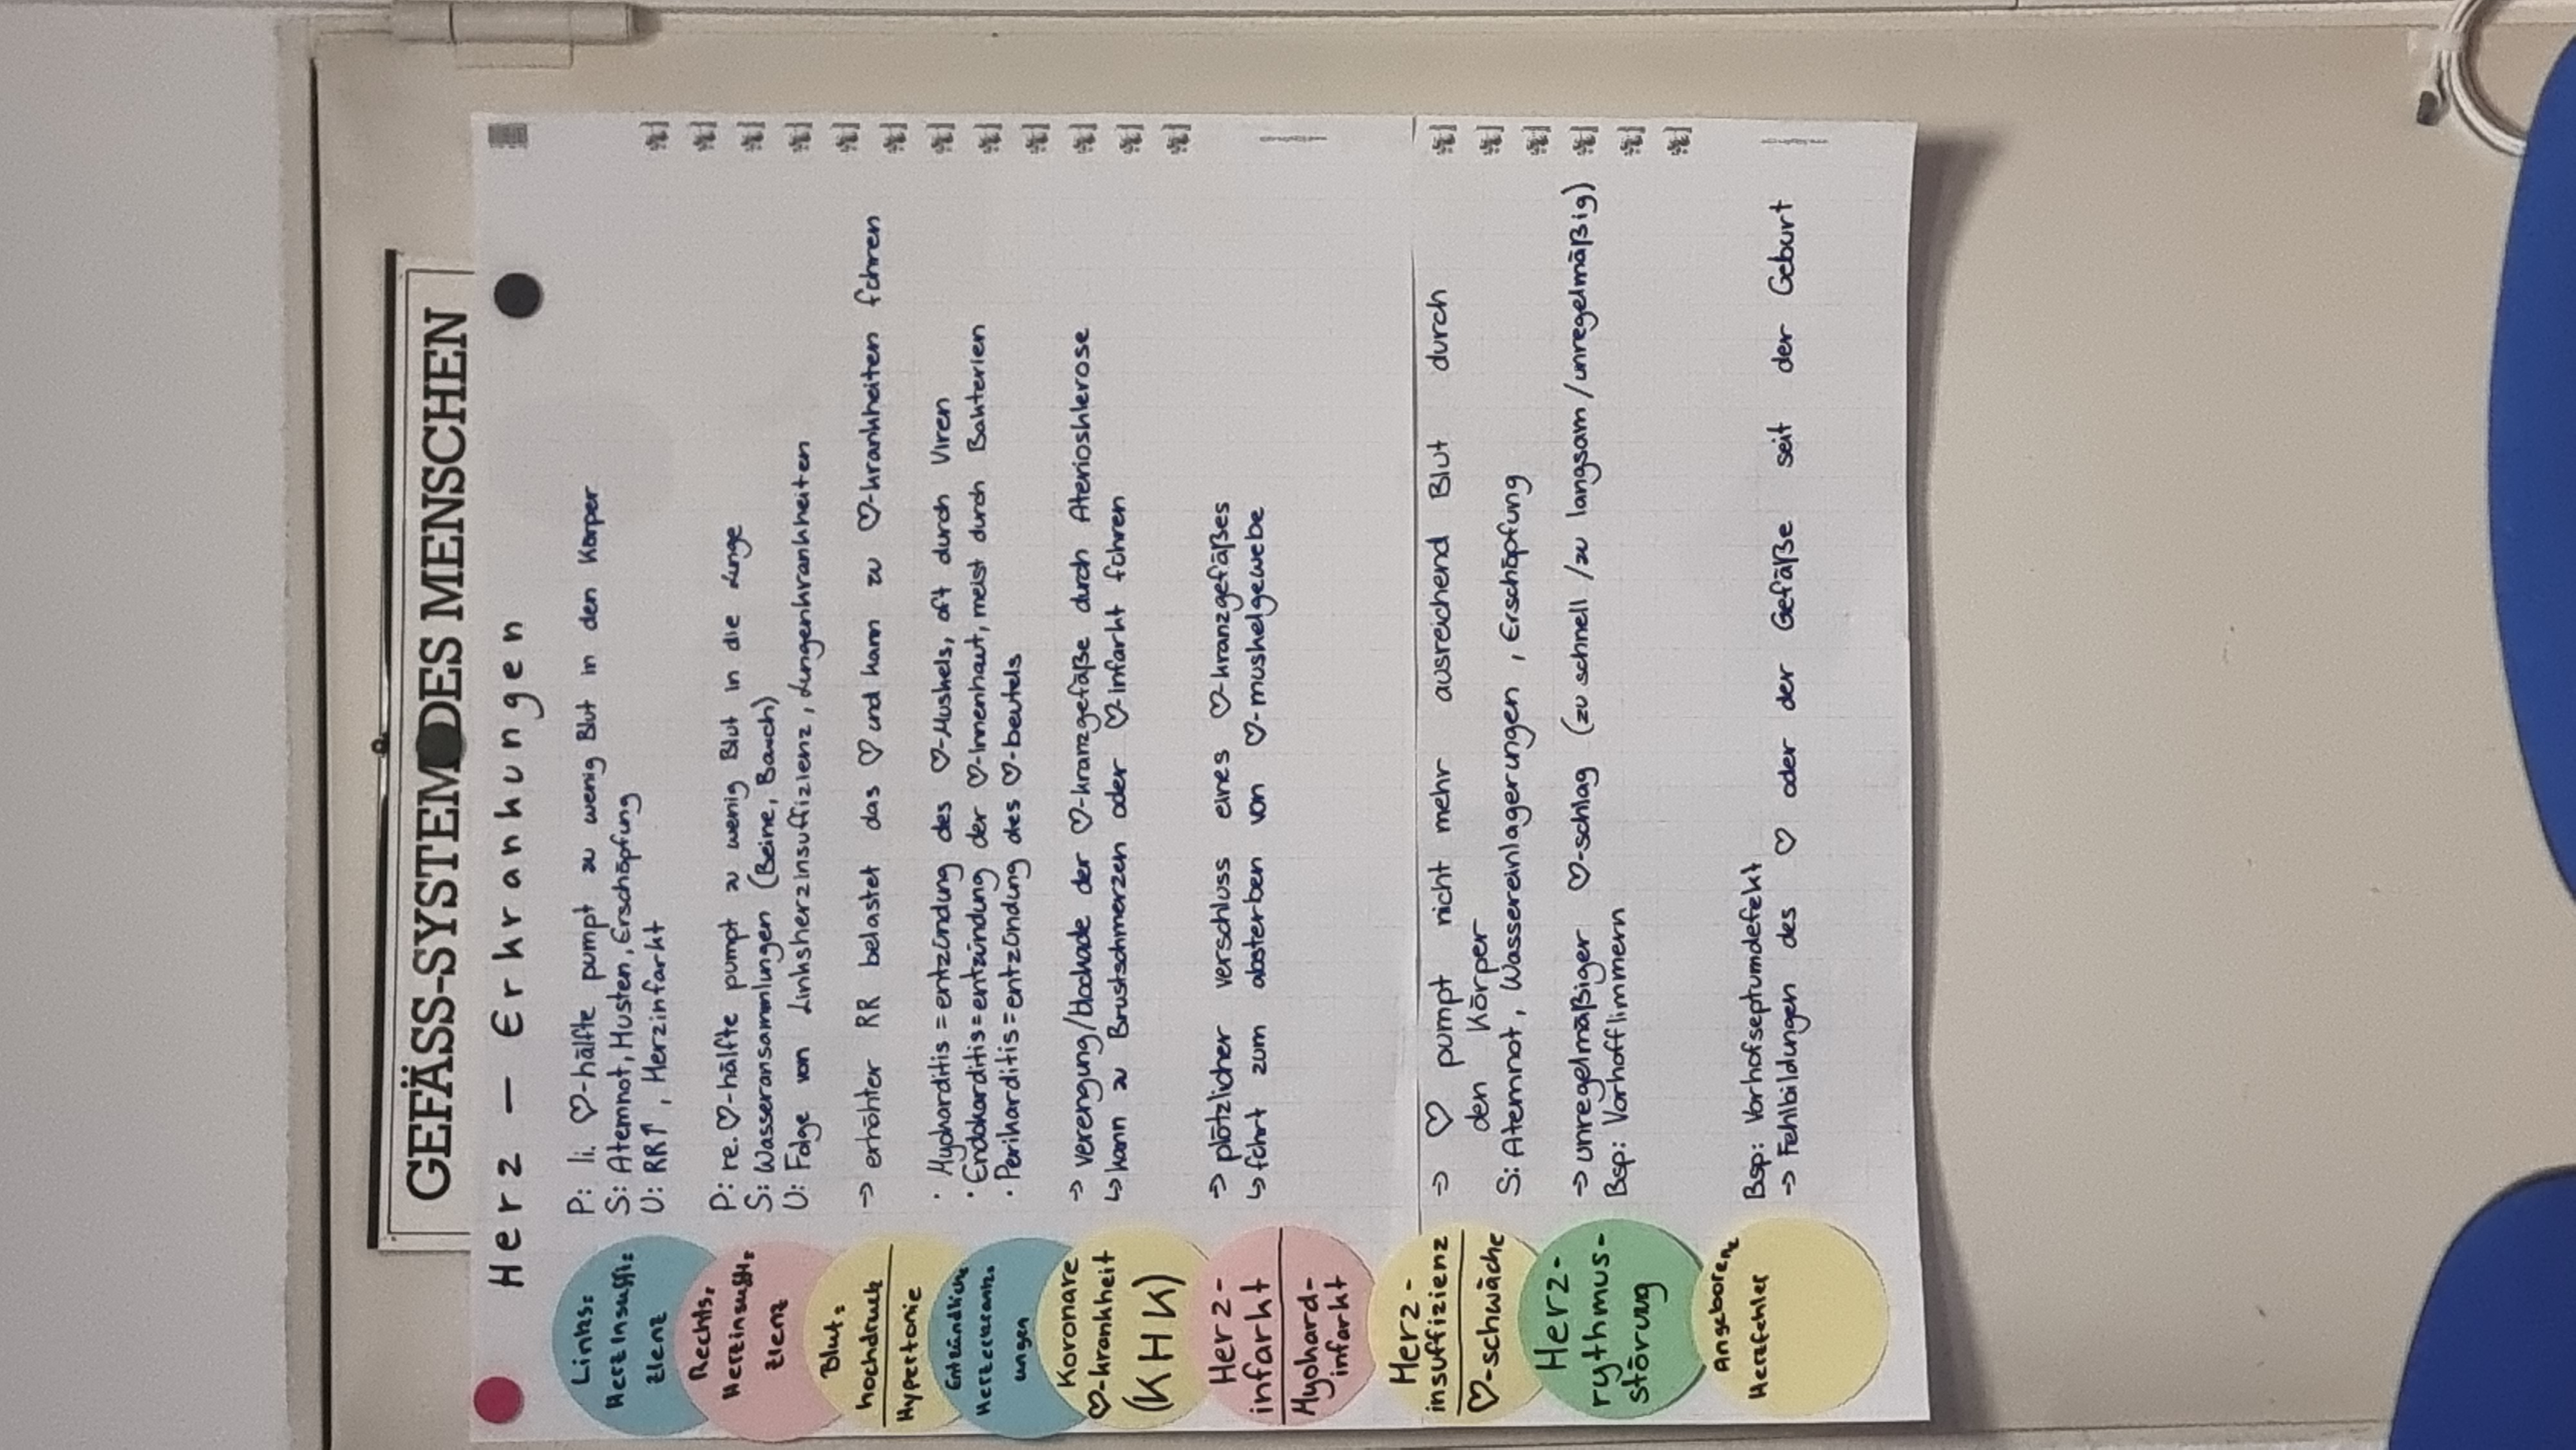 GEFÄSS-SYSTEM DES MENSCHEN
Herz - Erkrankungen
Links=
Herzinsuffi=
zienz
P: li. ♡-hälfte pumpt zu wenig Blut in den Körper
S: Atemnot, Husten, Erschöpfung
U: RR↑, Herzinfarkt
Rechts=
Herzinsuffi=
zienz
P: re. ♡-hälfte pumpt zu wenig Blut in die Lunge
S: Wasseransammlungen (Beine, Bauch)
U: Folge von Linksherzinsuffizienz, Lungenkrankheiten
Blut=
hochdruck
Hypertonie
→ erhöhter RR belastet das ♡ und kann zu ♡-krankheiten führen
Entzündliche
Herzerkrank=
ungen
· Myokarditis = entzündung des ♡-Muskels, oft durch Viren
· Endokarditis = entzündung der ♡-Innenhaut, meist durch Bakterien
· Perikarditis = entzündung des ♡-beutels
Koronare
♡-krankheit
(KHK)
→ verengung/blockade der ♡-kranzgefäße durch Aterioshlerose
↳ kann zu Brustschmerzen oder ♡-infarkt führen
Herz-
infarkt
Myokard-
infarkt
→ plötzlicher verschluss eines ♡-kranzgefäßes
↳ führt zum absterben von ♡-muskelgewebe
Herz-
insuffizienz
♡-schwäche
→ ♡ pumpt nicht mehr ausreichend Blut durch
den Körper
S: Atemnot, Wassereinlagerungen, Erschöpfung
Herz-
rythmus-
störung
→ unregelmäßiger ♡-schlag (zu schnell/zu langsam/unregelmäßig)
Bsp: Vorhofflimmern
Angeborene
Herzfehler
Bsp: Vorhofseptumdefekt
→ Fehlbildungen des ♡ oder der Gefäße seit der Geburt